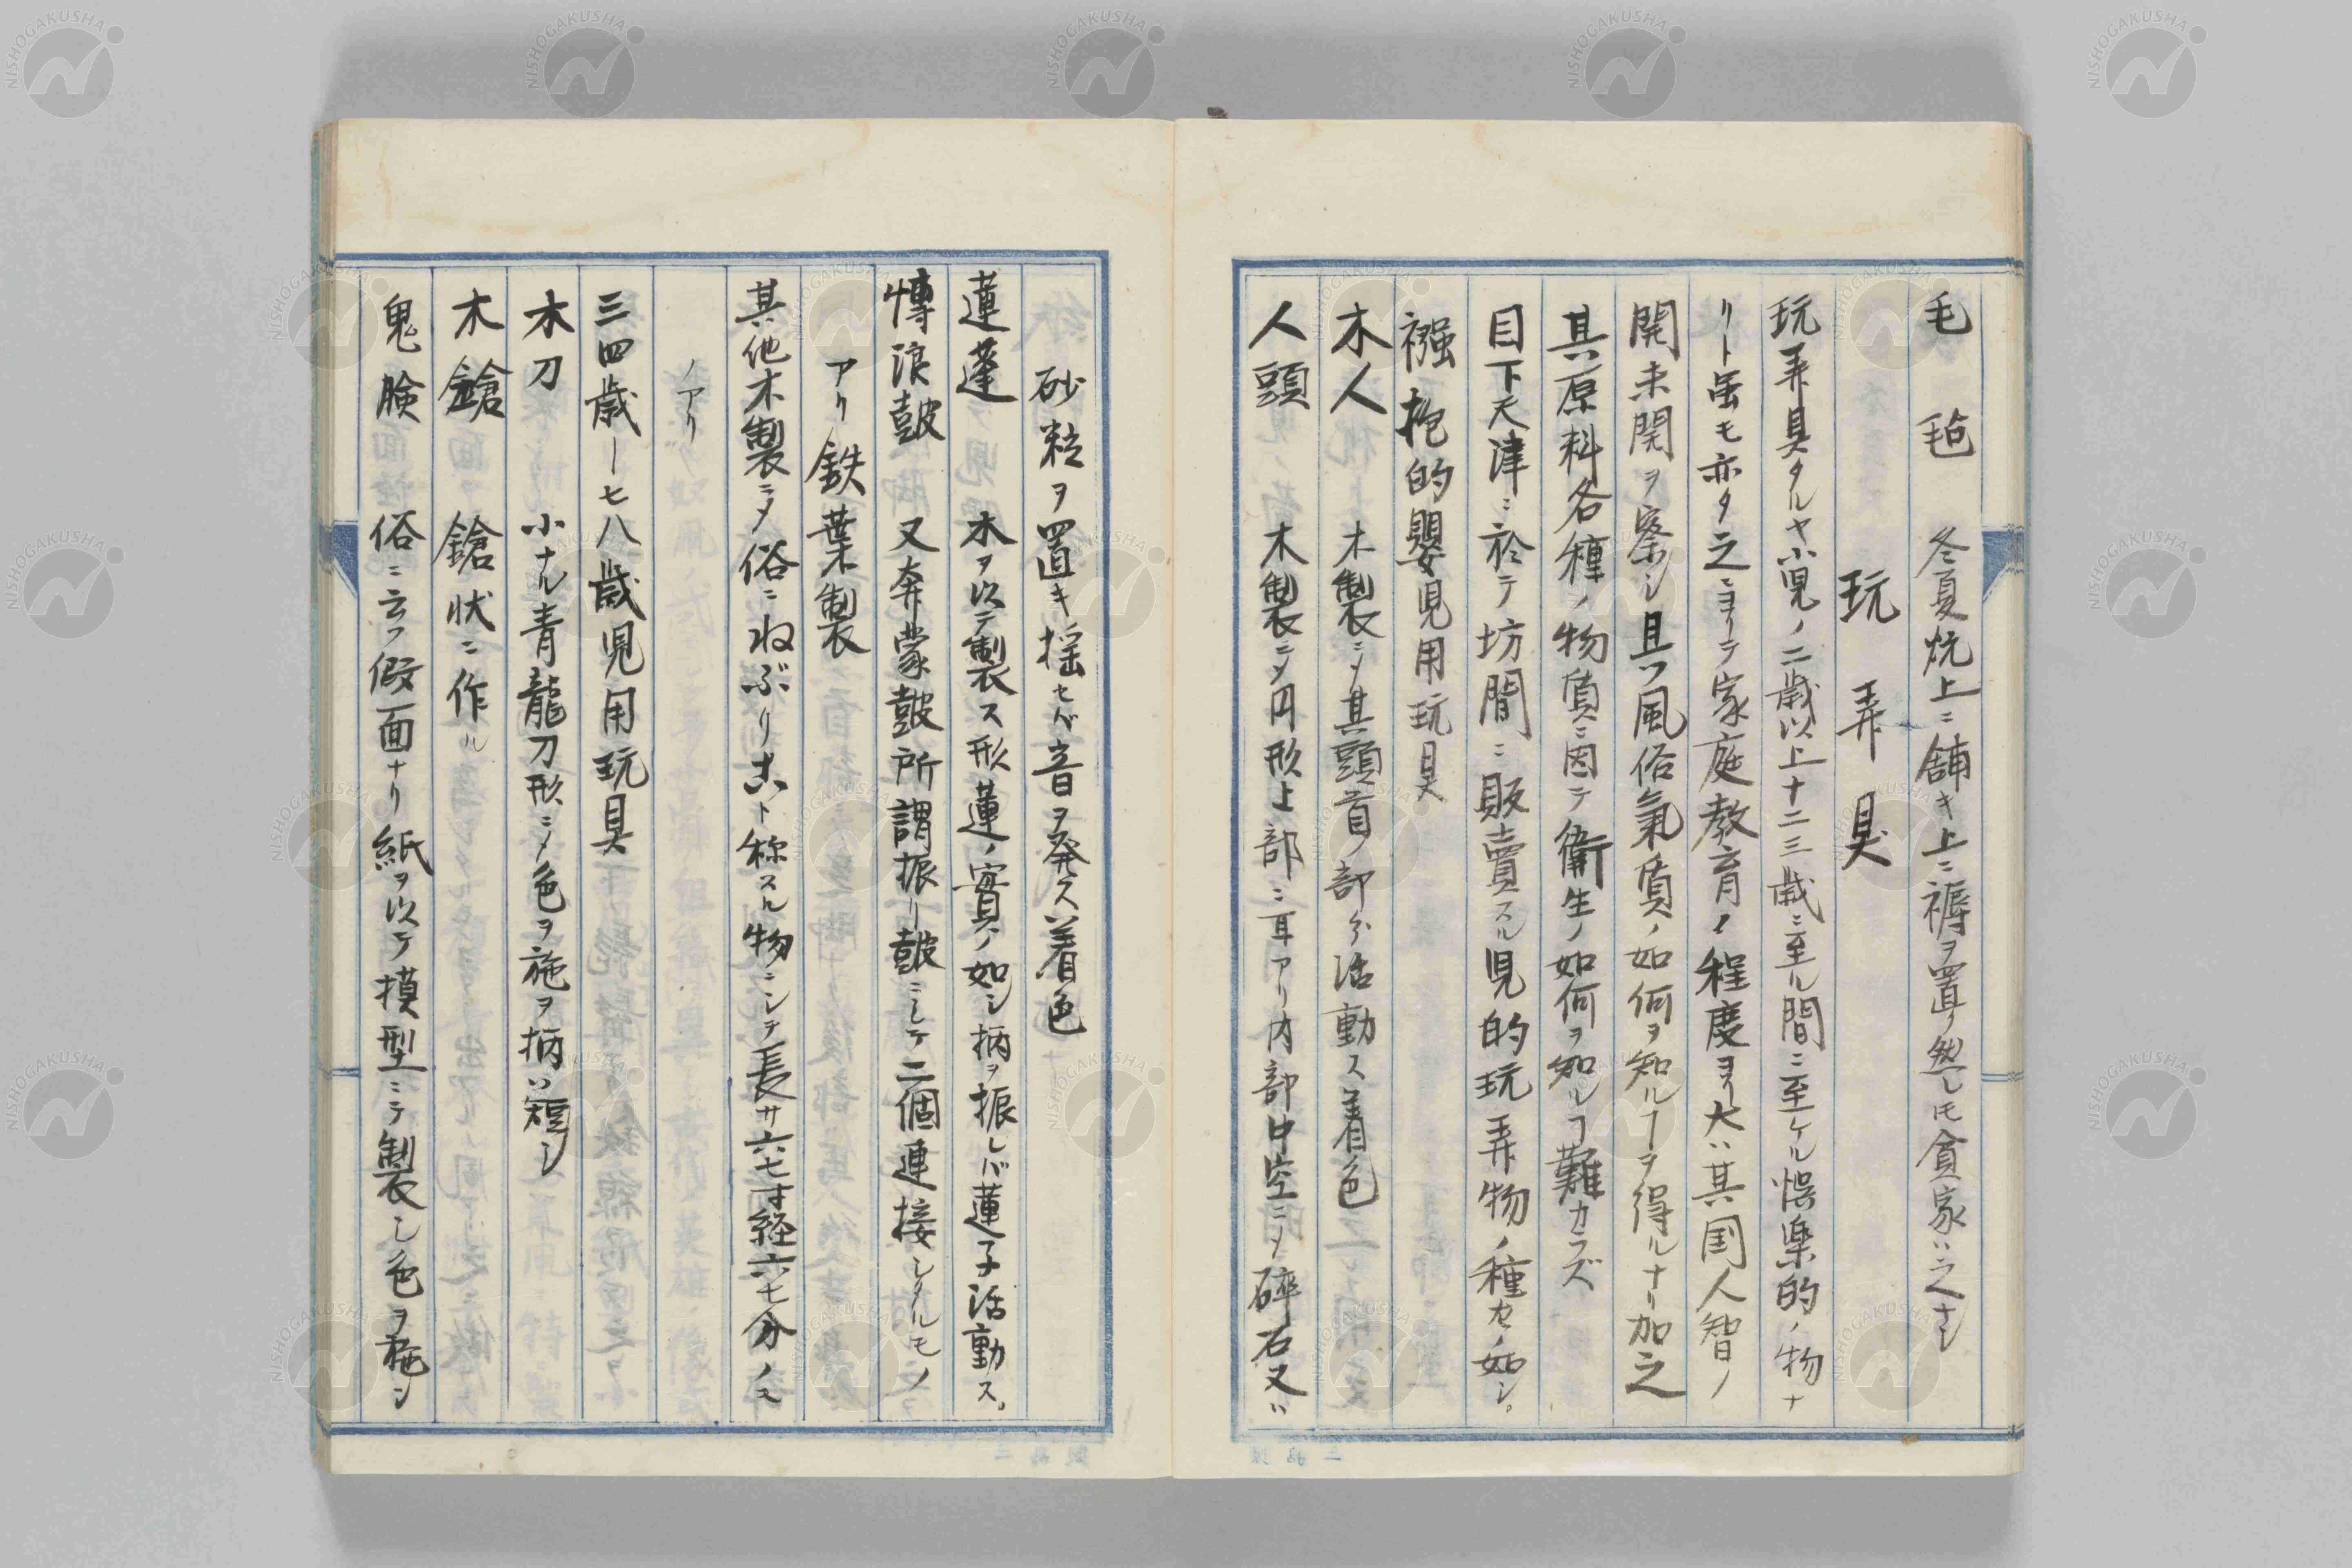 毛毡 冬夏炕上ニ舗キ上ニ褥ヲ置ク然レ𪜈貧家ハ之ナシ
玩弄具
玩弄具タルヤ小児ノ二歳以上十二三歳ニ至ル間ニ至ケル娯楽的ノ物ナ
リト虽モ亦タ之ニヨリテ家庭教育ノ程度ヨリ大ハ其国人智ノ
開未開ヲ察シ且ツ風俗氣質ノ如何ヲ知ルヿヲ得ルナリ加之
其原料各種ノ物質ニ因テ衛生ノ如何ヲ知ルヿ難カラズ
目下天津ニ於テ坊間ニ販賣スル児的玩弄物ノ種類ノ如シ。
襁抱的嬰児用玩具
木人 木製ニ〆其頭首ノ部分活動ス着色
人頭 木製ニ〆円形上部ニ耳アリ内部中空ニ〆碎石又ハ
砂粒ヲ置キ揺セバ音ヲ発ス着色
蓮蓬 木ヲ以テ製ス形蓮ノ實ノ如シ柄ヲ振レバ蓮子活動ス。
慱浪皷 又奔蒙皷所謂振リ皷ニシテ二個連接シタルモノ
アリ鉄葉製
其他木製ニ〆俗ニねぶりこト称スル物ニシテ長サ六七寸経六七分ノモ
ノアリ
三四歳ー七八歳児用玩具
木刀 小ナル青龍刀形ニ〆色ヲ施ヲ柄ハ短シ
木鎗 鎗状ニ作ル
鬼臉 俗ニ云フ假面ナリ紙ヲ以テ摸型ニテ製シ色ヲ施シ
NISHOGAKUSHA